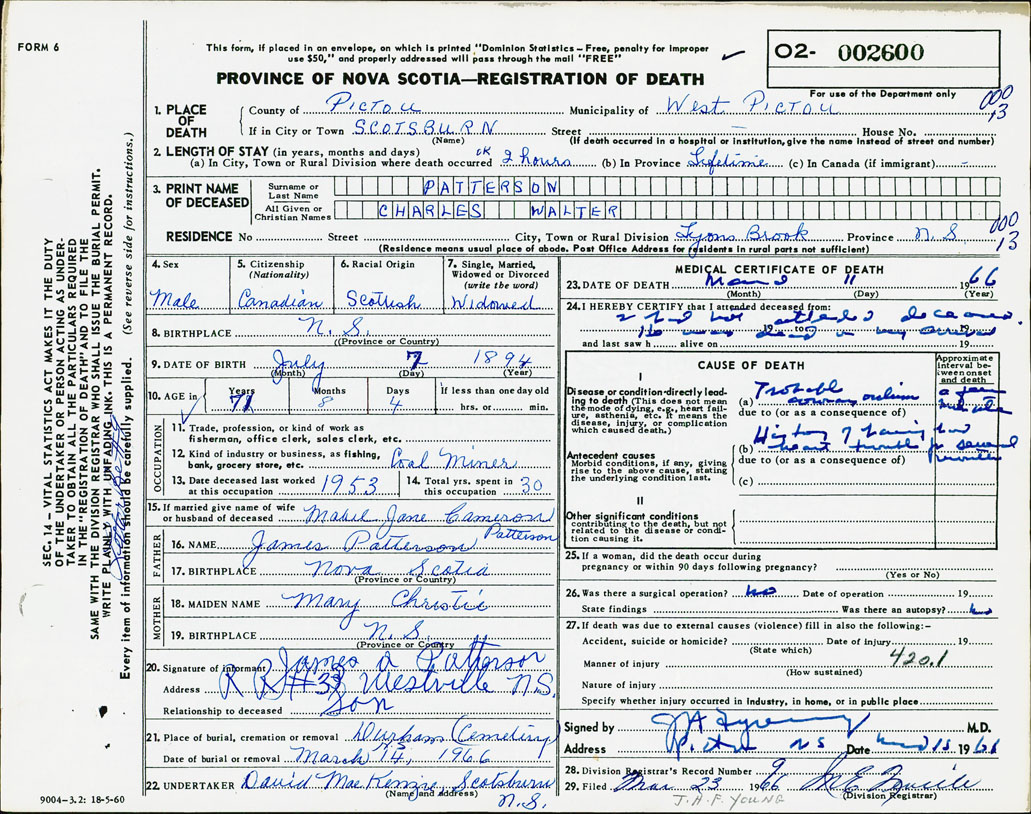 FORM 6
This form, if placed in an envelope, on which is printed "Dominion Statistics – Free, penalty for improper
use $50," and properly addressed will pass through the mail "FREE"
O2- 002600
For use of the Department only
PROVINCE OF NOVA SCOTIA—REGISTRATION OF DEATH
SEC. 14 – VITAL STATISTICS ACT MAKES IT THE DUTY
OF THE UNDERTAKER OR PERSON ACTING AS UNDER-
TAKER TO OBTAIN ALL THE PARTICULARS REQUIRED
IN THE "REGISTRATION OF DEATH" AND TO FILE THE
SAME WITH THE DIVISION REGISTRAR WHO SHALL ISSUE THE BURIAL PERMIT.
WRITE PLAINLY WITH UNFADING INK. THIS IS A PERMANENT RECORD.
Every item of information should be carefully supplied. (See reverse side for instructions.)
1. PLACE OF DEATH County of Pictou Municipality of West Pictou 000 13
If in City or Town SCOTSBURN Street — House No.
(Name) (If death occurred in a hospital or institution, give the name instead of street and number)
2. LENGTH OF STAY (in years, months and days) OK
(a) In City, Town or Rural Division where death occurred 2 hours (b) In Province Lifetime (c) In Canada (if immigrant) -
3. PRINT NAME OF DECEASED
Surname or Last Name PATTERSON
All Given or Christian Names CHARLES WALTER
RESIDENCE No Street City, Town or Rural Division Lyons Brook Province N.S 000 13
(Residence means usual place of abode. Post Office Address for residents in rural parts not sufficient)
4. Sex Male
5. Citizenship (Nationality) Canadian
6. Racial Origin Scottish
7. Single, Married, Widowed or Divorced (write the word) Widowed
8. BIRTHPLACE N.S.
(Province or Country)
9. DATE OF BIRTH July 7 1894
(Month) (Day) (Year)
10. AGE in Years 71 Months 8 Days 4 If less than one day old hrs. or min.
OCCUPATION
11. Trade, profession, or kind of work as
fisherman, office clerk, sales clerk, etc.
12. Kind of industry or business, as fishing,
bank, grocery store, etc. Coal Miner
13. Date deceased last worked at this occupation 1953
14. Total yrs. spent in this occupation 30
15. If married give name of wife
or husband of deceased Mabel Jane Cameron Patterson
FATHER
16. NAME James Patterson
17. BIRTHPLACE Nova Scotia
(Province or Country)
MOTHER
18. MAIDEN NAME Mary Christie
19. BIRTHPLACE N.S.
(Province or Country)
20. Signature of informant James A Patterson
Address R R #3 Westville N.S.
Relationship to deceased Son
21. Place of burial, cremation or removal Durham (Cemetery) N.S
Date of burial or removal March 14, 1966
22. UNDERTAKER David MacKenzie, Scotsburn N.S.
(Name and address)
9004–3.2: 18-5-60
MEDICAL CERTIFICATE OF DEATH
23. DATE OF DEATH March 11 1966
(Month) (Day) (Year)
24. I HEREBY CERTIFY that I attended deceased from:
I had not attended deceased.
19 to 19
He was dead on my arrival
and last saw h alive on 19
CAUSE OF DEATH
Approximate interval between onset and death
I
Disease or condition directly leading to death (This does not mean the mode of dying, e.g., heart failure, asthenia, etc. It means the disease, injury, or complication which caused death.)
(a) Probable coronary occlusion a few minutes
due to (or as a consequence of)
Antecedent causes
Morbid conditions, if any, giving rise to the above cause, stating the underlying condition last.
(b) History of having had heart trouble for several
due to (or as a consequence of)
(c)
II
Other significant conditions
contributing to the death, but not related to the disease or condition causing it.
25. If a woman, did the death occur during
pregnancy or within 90 days following pregnancy?
(Yes or No)
26. Was there a surgical operation? No Date of operation 19
State findings Was there an autopsy? No
27. If death was due to external causes (violence) fill in also the following:–
Accident, suicide or homicide? Date of injury 19
(State which)
Manner of injury 420.1
(How sustained)
Nature of injury
Specify whether injury occurred in industry, in home, or in public place
Signed by M.D.
Address Pictou NS Date March 15 1966
28. Division Registrar's Record Number 9
29. Filed Mar 23 1966
(Division Registrar)
J.H.F. YOUNG